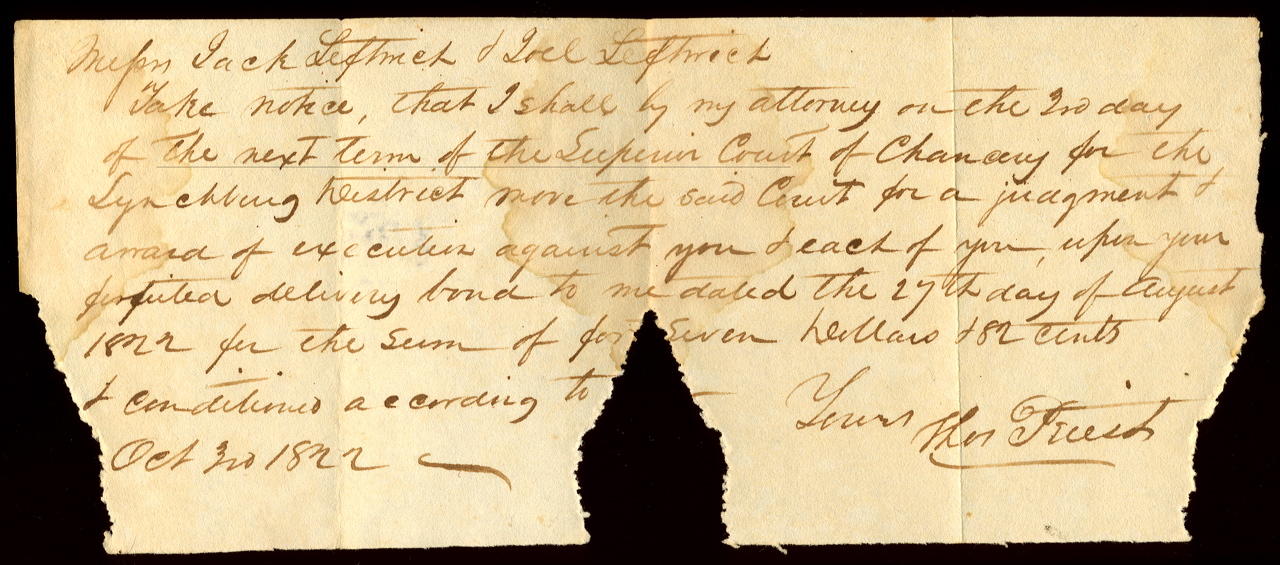 Messrs Jack Leftwich & Joel Leftwich
Take notice, that I shall by my attorney on the 3rd day
of the next term of the Superior Court of Chancery for the
Lynchburg District move the said Court for a judgment &
award of execution against you & each of you, upon your
forfeited delivery bond to me dated the 27th day of August
1822 for the Sum of for Seven Dollars & 82 cents
& conditioned according to
Yours
Thos Priest
Oct 3rd 1822